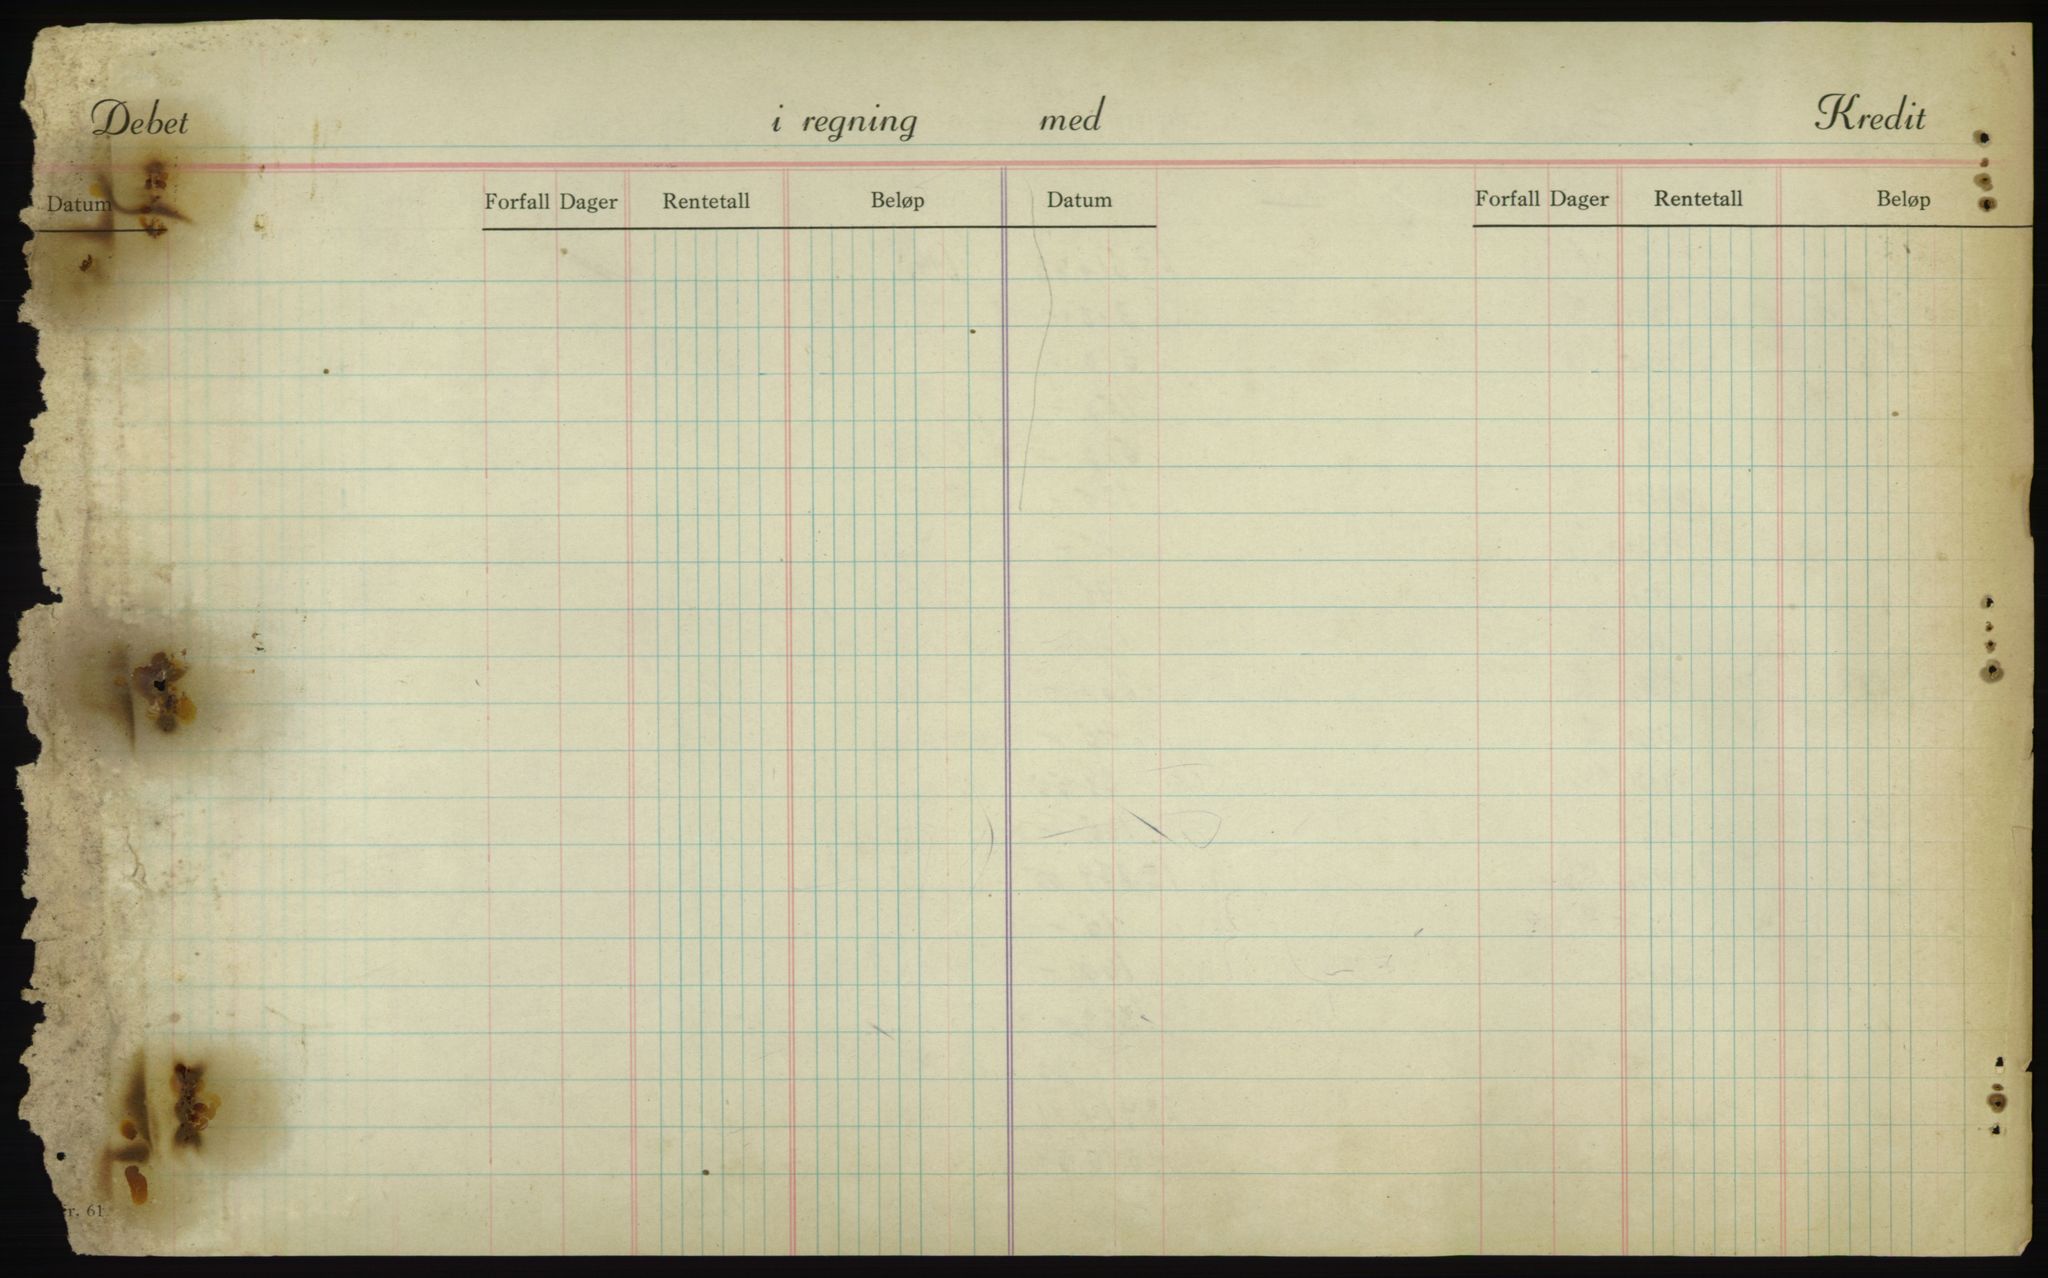 Debet i regning med Kredit
Datum Forfall Dager Rentetall Beløp Datum Forfall Dager Rentetall Beløp
r. 61